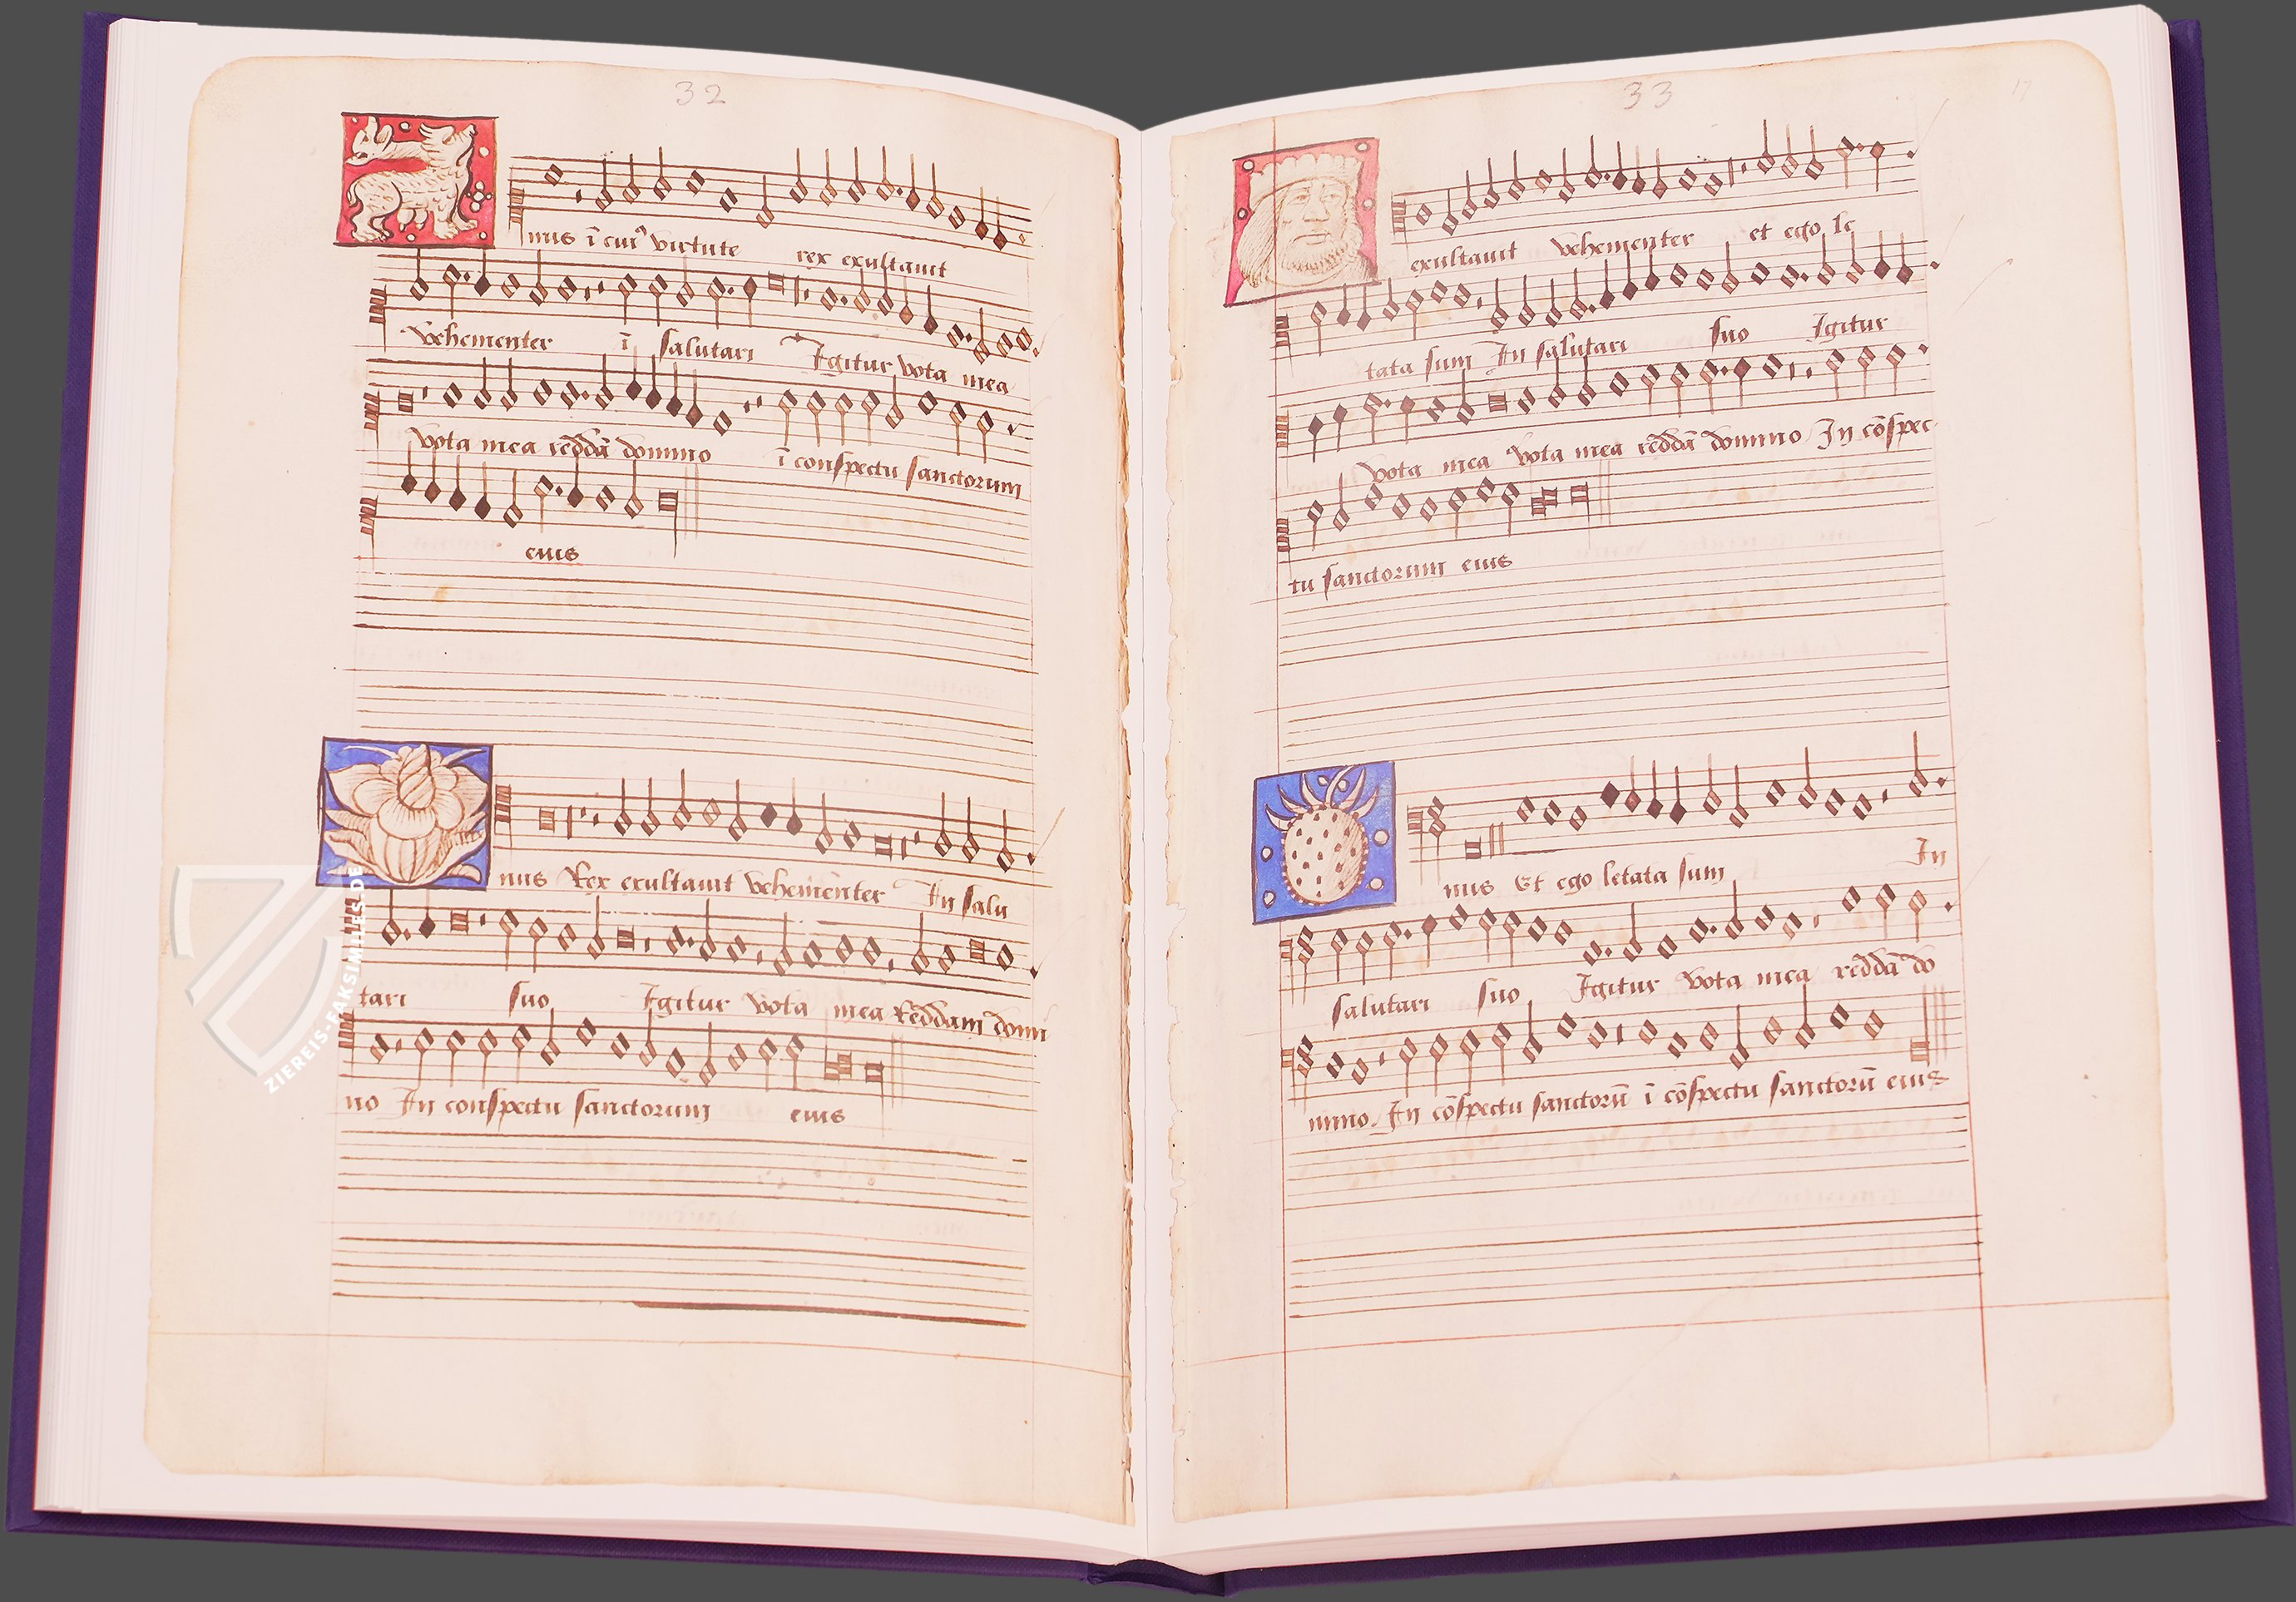 32
nus ī cuiꝰ virtute rex exultauit
vehementer ī salutari Igitur vota mea
vota mea reddā domino ī conspectu sanctorum
eius
nus Rex exultauit vehementer In salu
tari suo Igitur vota mea Reddam domi
no In conspectu sanctorum eius
ZIEREIS-FAKSIMILES.DE
33
17
exultauit vehementer et ego le
tata sum In salutari suo Igitur
vota mea vota mea reddā domino In cōspec
tu sanctorum eius
nus Et ego letata sum In
salutari suo Igitur vota mea reddā do
mino In cōspectu sanctorū ī cōspectu sanctorū eius